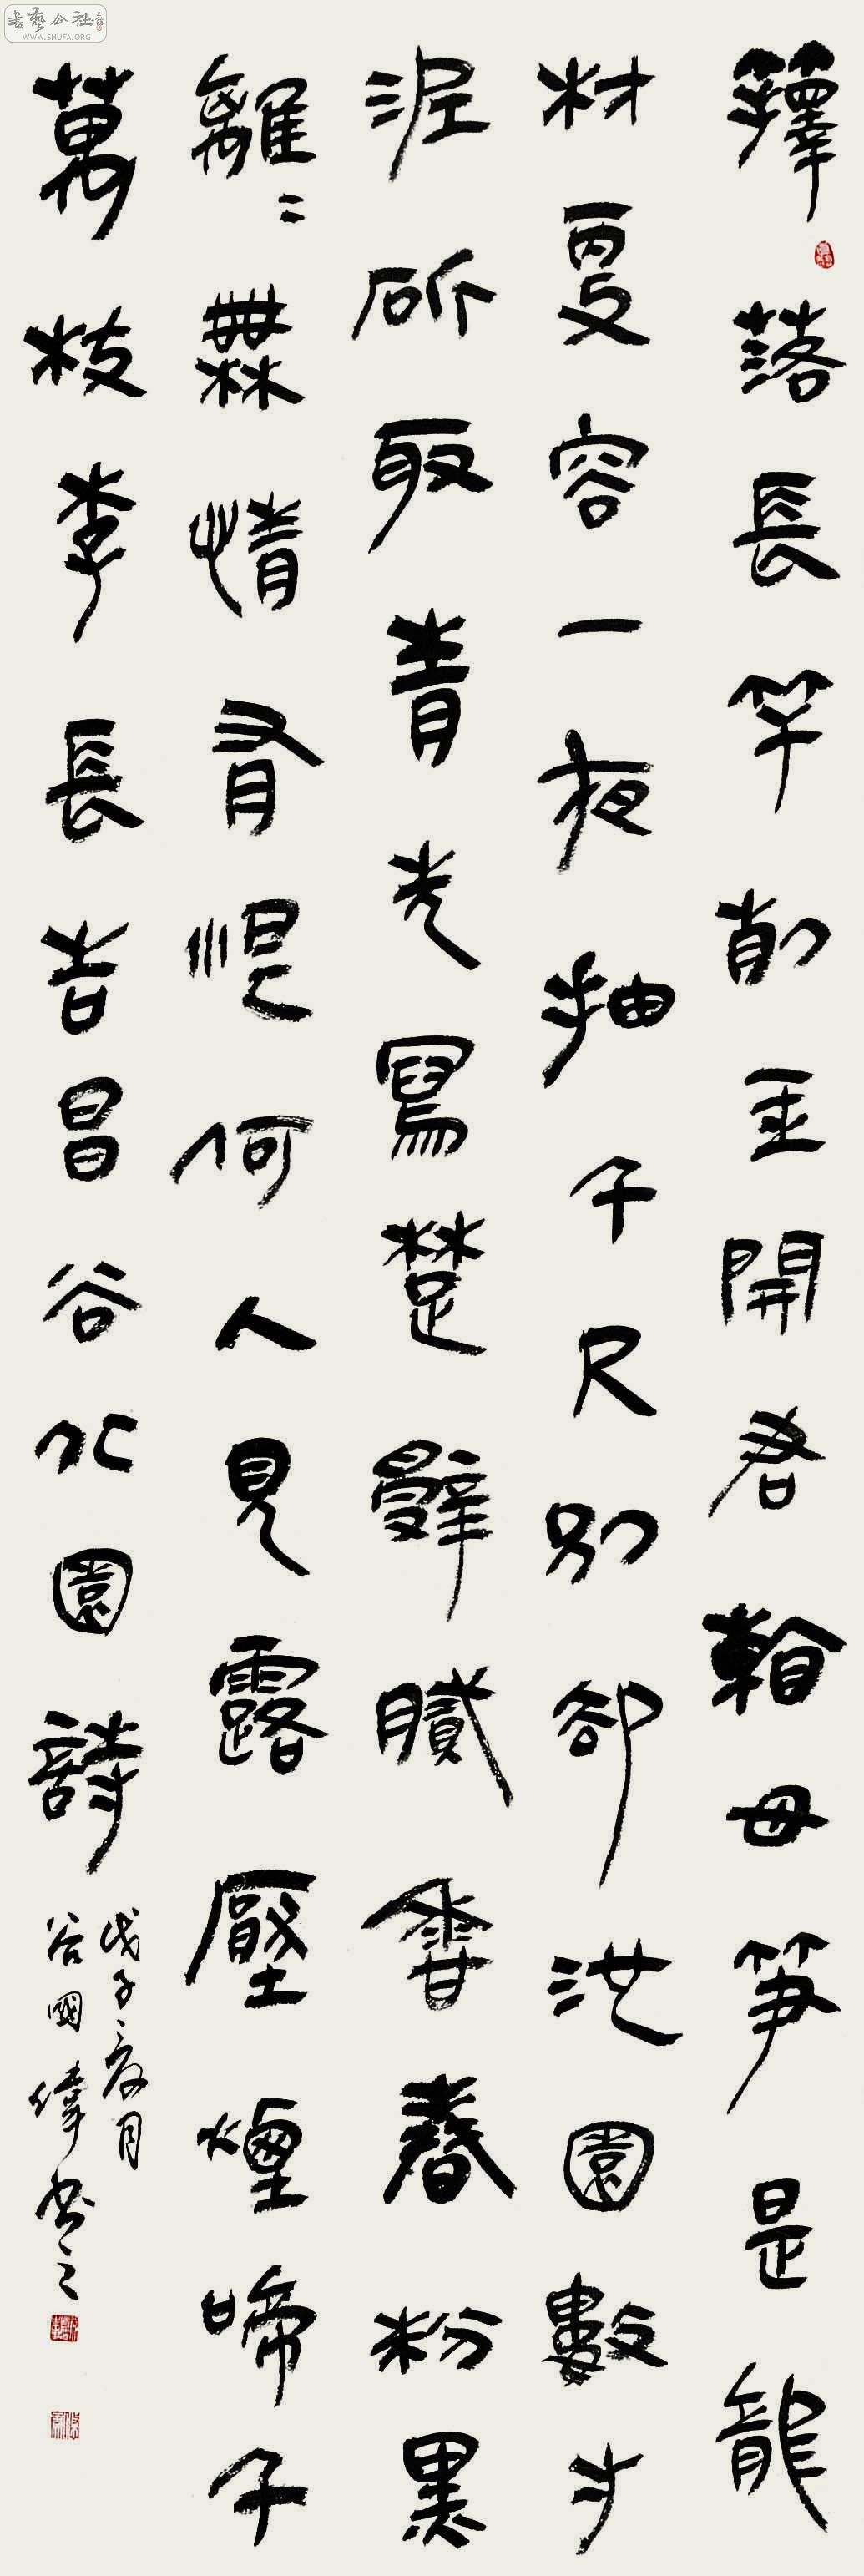 書藝公社
WWW.SHUFA.ORG
籜落長竿削玉開君看母笋是龍
材更容一夜抽千尺別卻池園數寸
泥斫取青光寫楚辭膩香春粉黑
離々無情有恨何人見露壓煙啼千
萬枝李長吉昌谷北園詩
戊子夏月
谷國偉書之